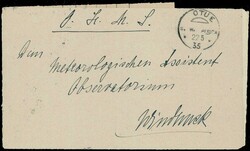 O. H. M. S.
OTUE
22 3
35
Den
Meteorologischen Assistent
Observatorium
Windhuk